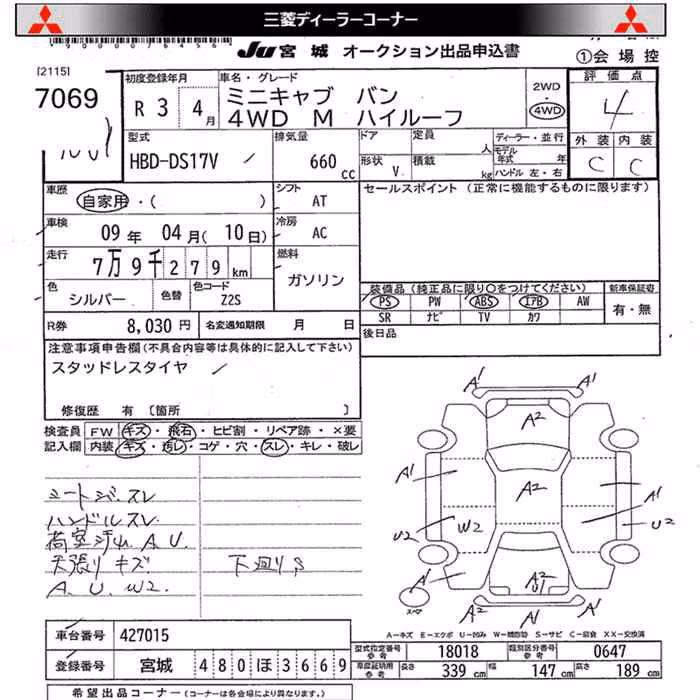 三菱ディーラーコーナー
Ju 宮城 オークション出品申込書
①会場控
[2115]
7069
初度登録年月
R 3 4月
車名・グレード
ミニキャブ バン
4WD M ハイルーフ
2WD
・
4WD
評価点
4
外装 内装
C C
型式
HBD-DS17V
排気量
660 cc
ドア
形状 V
定員 人
積載 kg
ディーラー・並行
モデル年式 年
ハンドル 左・右
車歴
自家用・( )
シフト
AT
セールスポイント (正常に機能するものに限ります)
車検
09年 04月(10日)
冷房
AC
走行
7万9千279km
燃料
ガソリン
色
シルバー
色替
色コード
Z2S
装備品(純正品に限り○をつけてください)
PS PW ABS エアB AW
SR ナビ TV カワ
新車保証書
有・無
R券 8,030円
名変通知期限 月 日
後日品
注意事項申告欄(不具合内容等は具体的に記入して下さい)
スタッドレスタイヤ
修復歴 有 〔箇所 〕
検査員 FW キズ・飛石・ヒビ割・リペア跡・×要
記入欄 内装 キズ・汚レ・コゲ・穴・スレ・キレ・破レ
シートジバスレ
ハンドルスレ
荷室汚れ A.U.
天張リキズ
A. U. W2
下廻りS
A1 A1
A2
A1
A2
A1
U2 W2
U2
A1
A2
U1
スペア
A2 A1 A2
A-キズ E-エクボ U-凹み W-補修跡 S-サビ C-腐食 XX-交換済
車台番号 427015
型式指定番号参考 18018
類別区分番号参考 0647
登録番号 宮城 480ほ3669
車庫証明用参考 長さ 339cm 幅 147cm 高さ 189cm
希望出品コーナー(コーナーは各会場により異なります。)